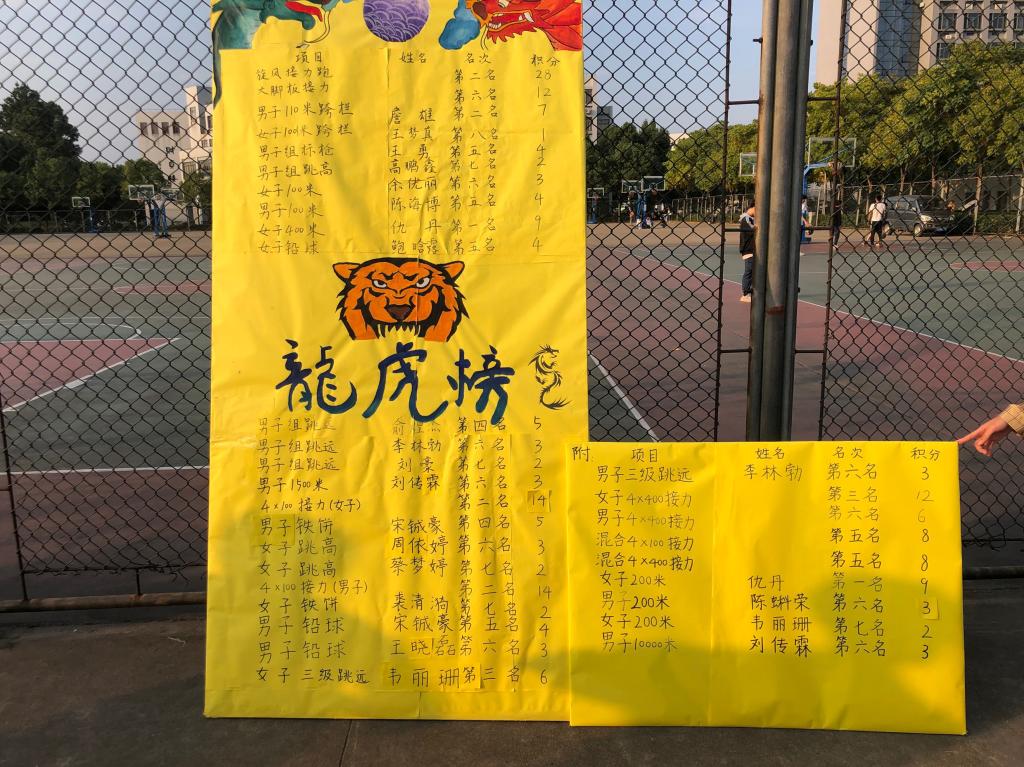 项目 姓名 名次 积分
旋风接力跑 第二名 28
大脚板接力 第六名 12
男子110米跨栏 詹雄 第二名 7
女子100米跨栏 王梦真 第八名 1
男子组标枪 王勇 第五名 4
男子组跳高 高鹏 第七名 2
女子100米 余优丽 第六名 3
男子100米 陈海博 第五名 4
女子400米 仇丹 第一名 9
女子铅球 鲍晗露 第五名 4
龍虎榜
男子组跳远 俞 杰 第四名 5
男子组跳远 李林勃 第六名 3
男子组跳远 刘豪 第七名 2
男子1500米 刘传霖 第六名 3
4×100接力(女子) 第二名 14
男子铁饼 宋铖豪 第四名 5
女子跳高 周依婷 第六名 3
女子跳高 蔡梦婷 第七名 2
4×100接力(男子) 第二名 14
女子铁饼 裘清漪 第七名 2
男子铅球 宋铖豪 第五名 4
男子铅球 王晓磊 第六名 3
女子三级跳远 韦丽珊 第三名 6
附. 项目 姓名 名次 积分
男子三级跳远 李林勃 第六名 3
女子4×400接力 第三名 12
男子4×400接力 第六名 6
混合4×100接力 第五名 8
混合4×400接力 第五名 8
女子200米 仇丹 第一名 9
男子200米 陈蝌荣 第六名 3
女子200米 韦丽珊 第七名 2
男子10000米 刘传霖 第六名 3